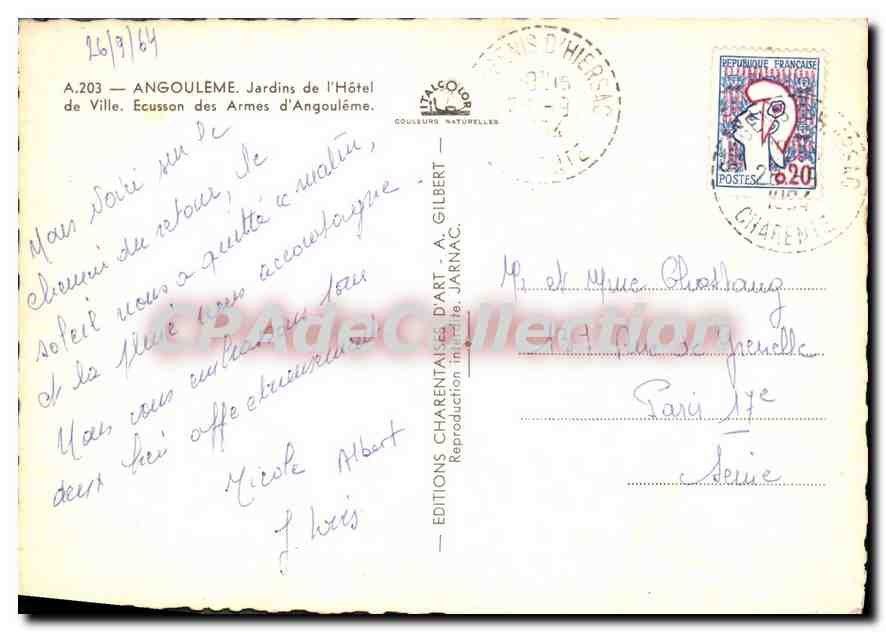 26/9/64
A.203 — ANGOULEME. Jardins de l'Hôtel
de Ville. Ecusson des Armes d'Angoulême.
ITALCOLOR
COULEURS NATURELLES
Nous voici sur le
chemin du retour, le
soleil nous a quitté ce matin,
et la pluie nous accompagne.
Nous vous embrassons tous
deux bien affectueusement
Nicole Albert
J. Loris
— EDITIONS CHARENTAISES D'ART - A. GILBERT —
Reproduction interdite. JARNAC.
DENIS D'HIERSAC
REPUBLIQUE FRANÇAISE
POSTES 0,20
HIERSAC
CHARENTE
Mr et Mme Chastang
Rue de Grenelle
Paris 17e
Seine
CPAdeCollection